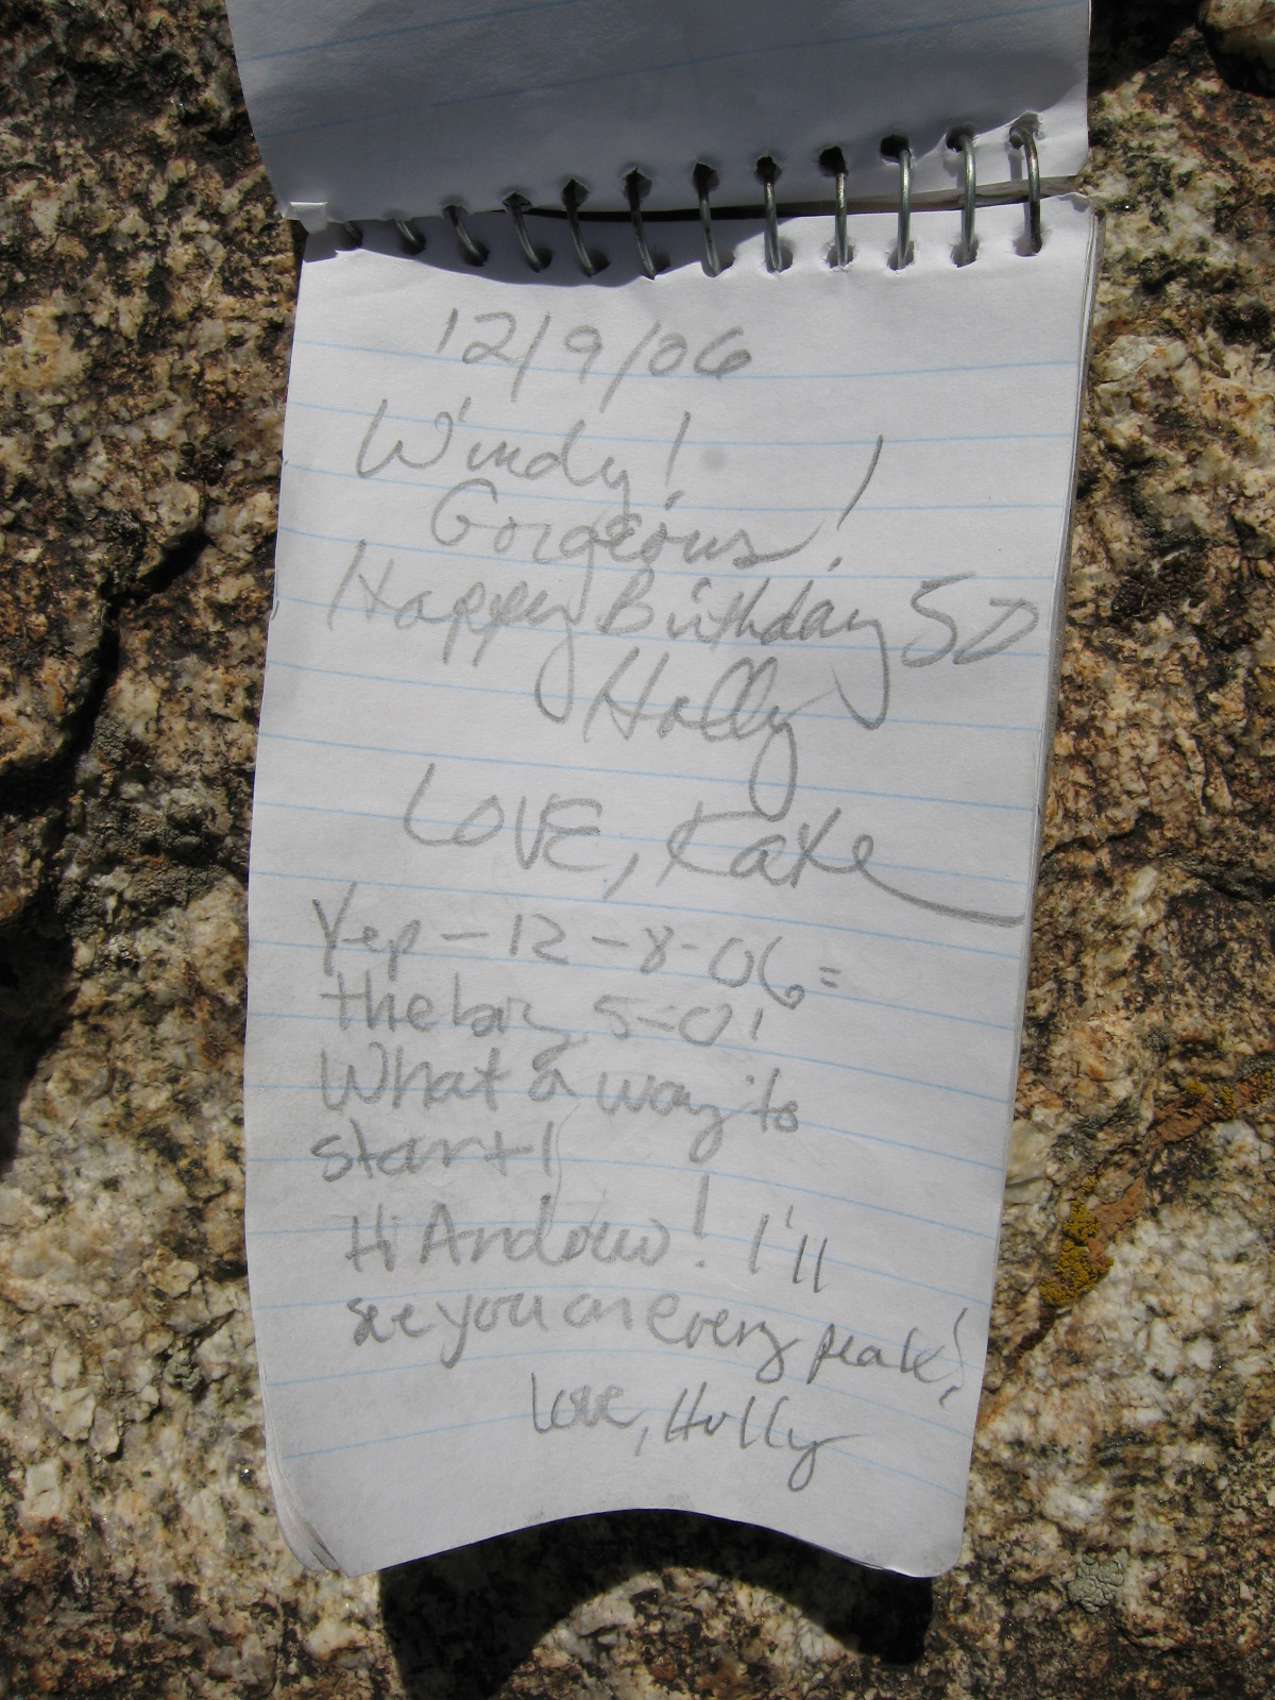 12/9/06
Windy!
Gorgeous!
Happy Birthday 50
Holly
LOVE, Kake
Yep - 12 - 8 - 06 =
the big 5-0!
What a way to
start!
Hi Andrew! I'll
see you on every peak!
Love, Holly